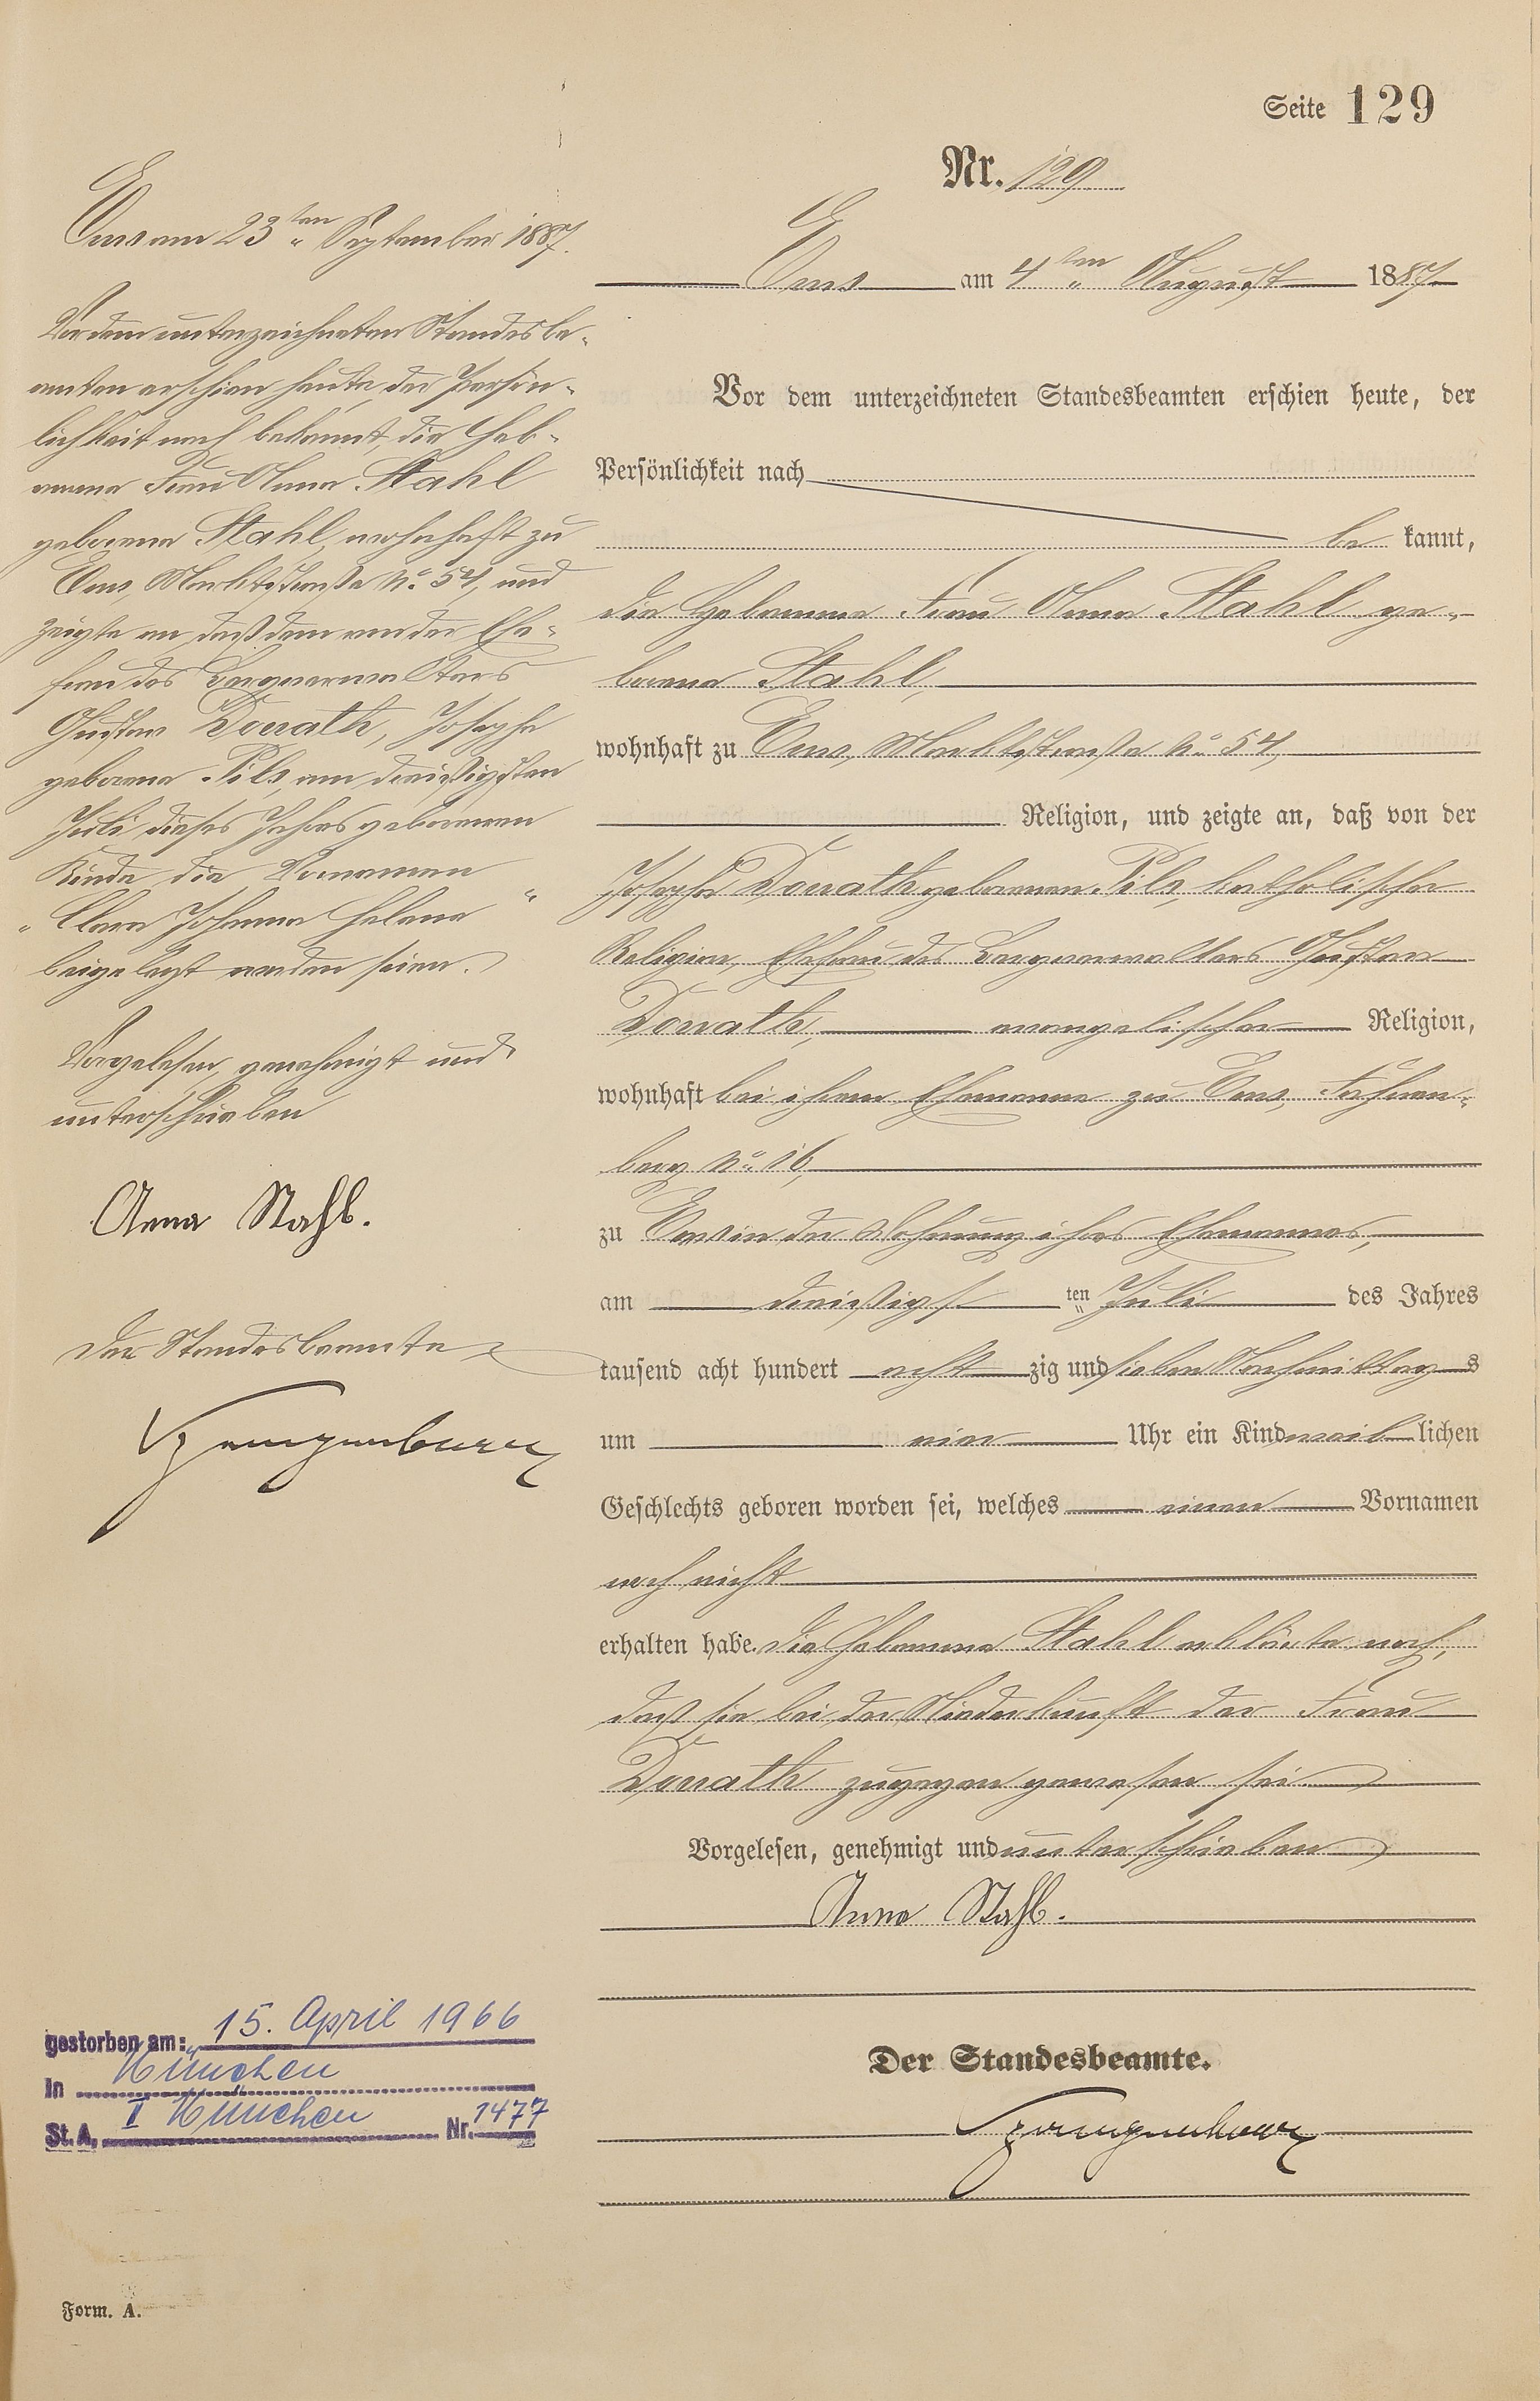 Seite 129
Nr. 129
Ems am 4ten August 1887
Vor dem unterzeichneten Standesbeamten erschien heute, der
Persönlichkeit nach
be kannt,
die Hebamme Frau Anna Stahl ge-
borene Stahl,
wohnhaft zu Ems, Marktstraße No. 54,
Religion, und zeigte an, daß von der
Josephe Donath geborenen Pils, katholischer
Religion, Ehefrau des Bergverwalters Gustav
Donath, evangelischer Religion,
wohnhaft bei ihrem Ehemanne zu Ems,
berg No. 16,
zu Ems in der Wohnung ihres Ehemannes,
am dreißigsten Juli des Jahres
tausend acht hundert acht zig und sieben Nachmittags
um vier Uhr ein Kind weiblichen
Geschlechts geboren worden sei, welches einen Vornamen
noch nicht
erhalten habe. Die Hebamme Stahl erklärte noch,
daß sie bei der Niederkunft der Frau
Donath zugegen gewesen sei
Vorgelesen, genehmigt und unterschrieben
Anna Stahl.
Der Standesbeamte.
Ems am 23ten September 1887.
Vor dem unterzeichneten Standesbe-
amten erschien heute, der Persön-
lichkeit nach bekannt, die Heb-
amme Frau Anna Stahl
geborene Stahl, wohnhaft zu
Ems, Marktstraße No. 54, und
zeigte an, daß dem von der Ehe-
frau des Bergverwalters
Gustav Donath, Josephe
geborene Pils, am dreißigsten
Juli dieses Jahres geborenen
Kinde die Vornamen
"Clara Johanna Helene"
beigelegt worden seien.
Vorgelesen, genehmigt und
unterschrieben
Anna Stahl.
Der Standesbeamte
gestorben am: 15. April 1966
in München
St. A. I München Nr. 1477
Form. A.